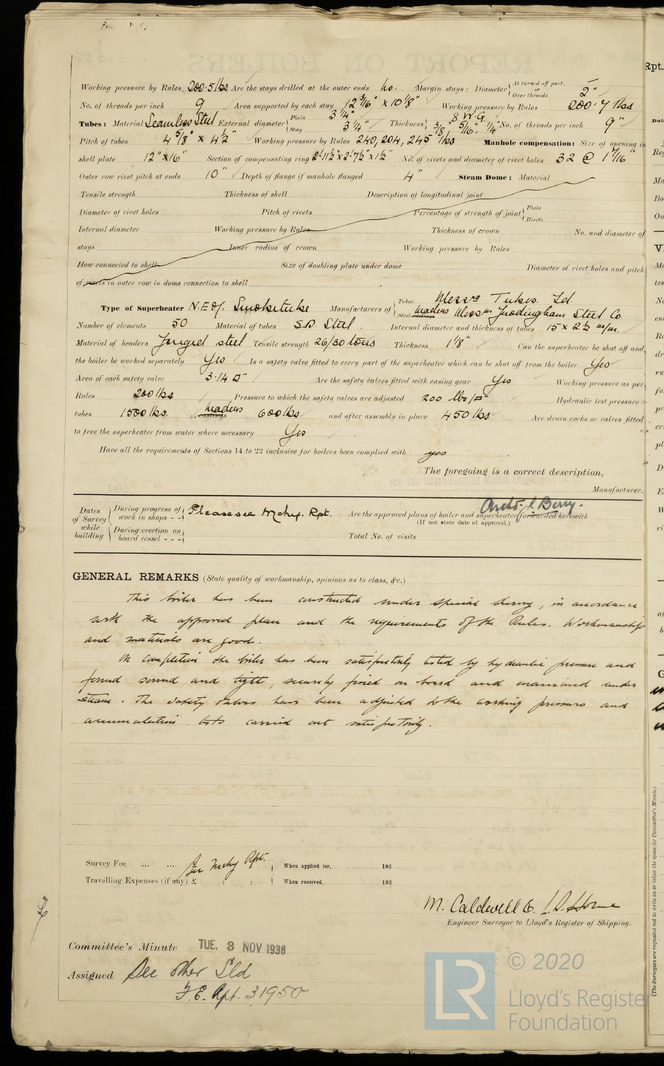 Working pressure by Rules 200.5 lbs Are the stays drilled at the outer ends No. Margin stays: Diameter { At turned off part, or Over threads 2"
No. of threads per inch 9 Area supported by each stay 12 3/16" x 10 1/8" Working pressure by Rules 200.7 lbs
Tubes: Material Seamless Steel External diameter { Plain 3 1/4" Stay 3 1/4" Thickness { 8 W.G. 3/8", 5/16", 1/4" No. of threads per inch 9"
Pitch of tubes 4 5/8" x 4 1/2" Working pressure by Rules 240, 204, 245 lbs Manhole compensation: Size of opening in
shell plate 12" x 16" Section of compensating ring No. of rivets and diameter of rivet holes 32 @ 1 1/16"
Outer row rivet pitch at ends 10" Depth of flange if manhole flanged 4" Steam Dome: Material
Tensile strength Thickness of shell Description of longitudinal joint
Diameter of rivet holes Pitch of rivets Percentage of strength of joint { Plate Rivets
Internal diameter Working pressure by Rules Thickness of crown No. and diameter of
stays Inner radius of crown Working pressure by Rules
How connected to shell Size of doubling plate under dome Diameter of rivet holes and pitch
of rivets in outer row in dome connection to shell
Type of Superheater N.E. Smoketube Manufacturers of { Tubes Messrs Tubes Ld Steel headers Messrs Frodingham Steel Co
Number of elements 50 Material of tubes S.D. Steel Internal diameter and thickness of tubes 15 x 2 1/2 m/m.
Material of headers Forged steel Tensile strength 26/30 tons Thickness 1 1/8" Can the superheater be shut off and
the boiler be worked separately Yes Is a safety valve fitted to every part of the superheater which can be shut off from the boiler Yes
Area of each safety valve 3.14 □" Are the safety valves fitted with easing gear Yes Working pressure as per
Rules 200 lbs Pressure to which the safety valves are adjusted 200 lbs/□" Hydraulic test pressure:
tubes 1500 lbs. headers 600 lbs. and after assembly in place 450 lbs Are drain cocks or valves fitted
to free the superheater from water where necessary Yes
Have all the requirements of Sections 14 to 22 inclusive for boilers been complied with yes
The foregoing is a correct description,
Archd. Berry. Manufacturer.
Dates of Survey while building { During progress of work in shops - - Please see Mchy. Rpt. Are the approved plans of boiler and superheater forwarded herewith
(If not state date of approval.)
During erection on board vessel - - - Total No. of visits
GENERAL REMARKS (State quality of workmanship, opinions as to class, &c.)
This boiler has been constructed under special survey, in accordance
with the approved plan and the requirements of the Rules. Workmanship
and materials are good.
On completion the boiler has been satisfactorily tested by hydraulic pressure and
found sound and tight, securely fixed on board and examined under
steam. The safety valves have been adjusted to the working pressure and
accumulation tests carried out satisfactorily.
Survey Fee ... ... See Mchy Rpt. When applied for, 192
Travelling Expenses (if any) £ : : When received, 192
M. Caldwell &
Engineer Surveyor to Lloyd's Register of Shipping.
Committee's Minute TUE. 3 NOV 1936
Assigned See other Sld
F.E. Rpt. 31950
LR © 2020
Lloyd's Register
Foundation